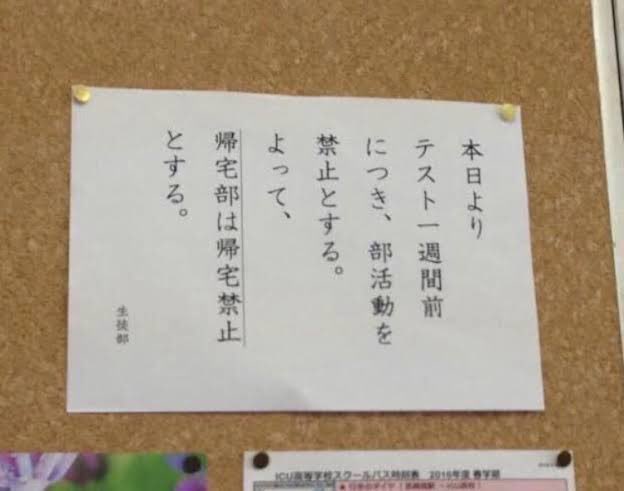 本日より
テスト一週間前
につき、部活動を
禁止とする。
よって、
帰宅部は帰宅禁止
とする。
生徒部
ICU高等学校スクールバス時刻表 2016年度 春学期